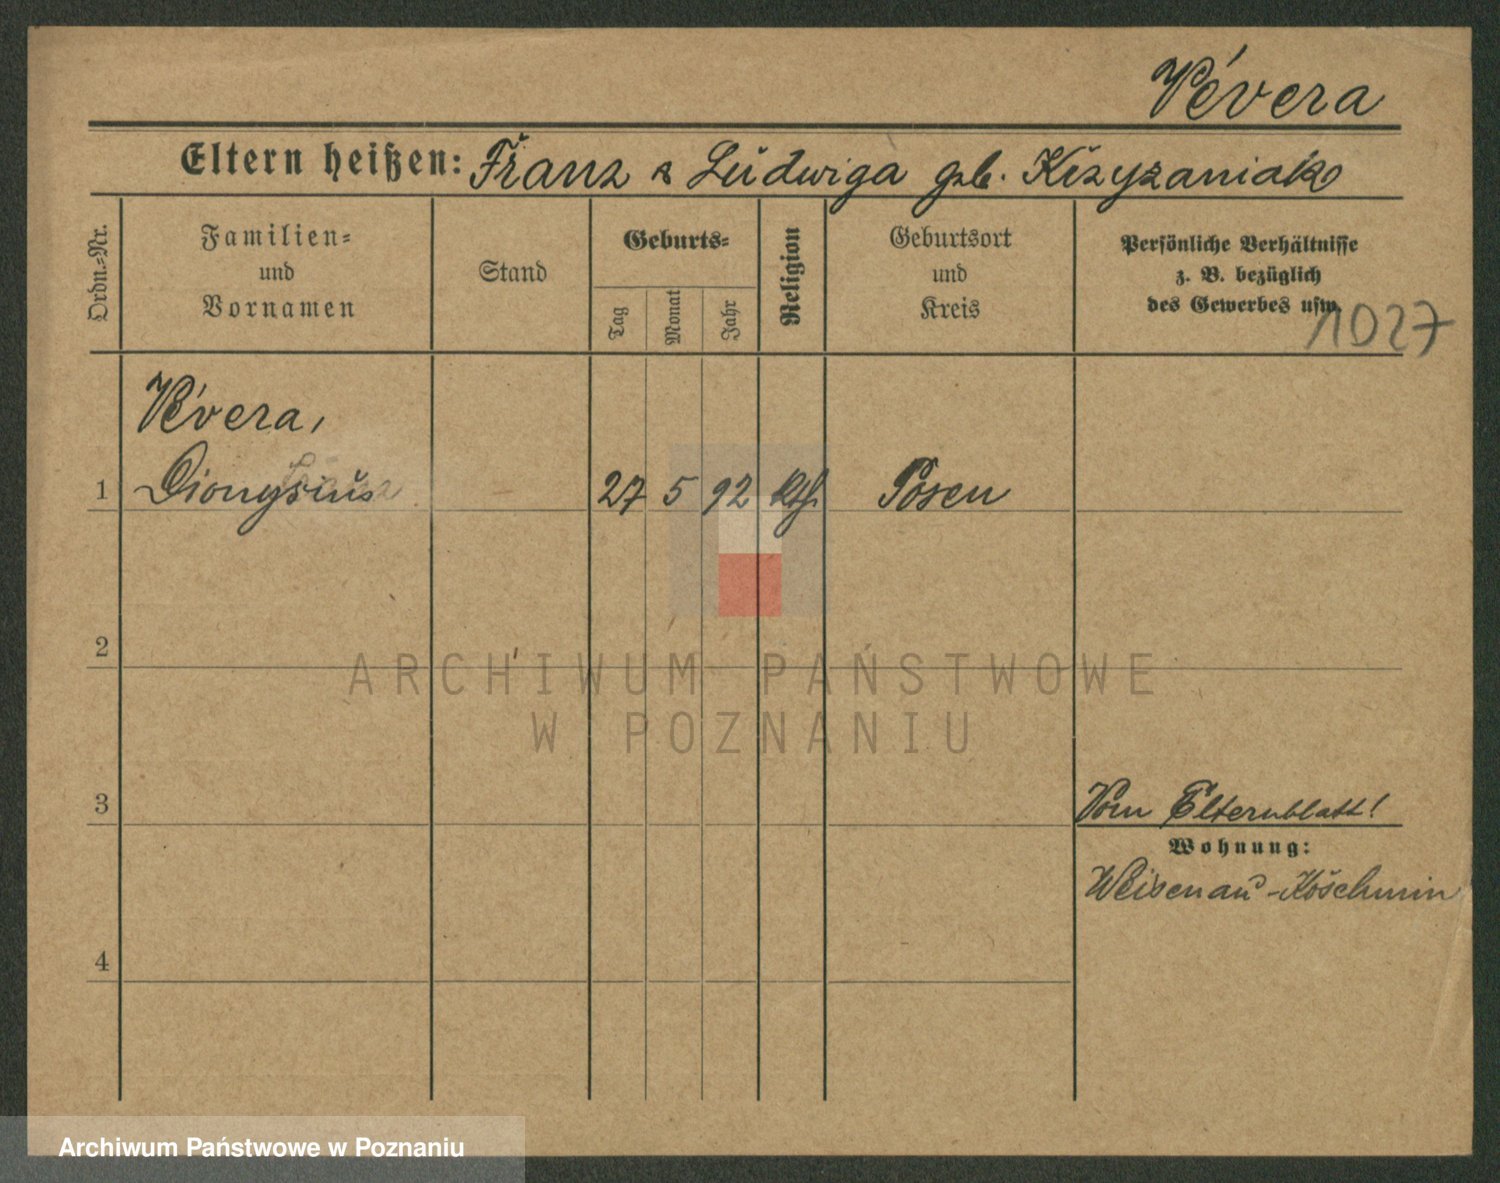 Vévera
Eltern heißen: Franz & Ludwiga geb. Krzyzaniak
Ordn.=Nr.
Familien=
und
Vornamen
Stand
Geburts=
Tag
Monat
Jahr
Religion
Geburtsort
und
Kreis
Persönliche Verhältnisse
z. B. bezüglich
des Gewerbes usw.
1027
Vévera,
1 Dionysius 27 5 92 kth. Posen
2
ARCHIWUM PAŃSTWOWE
W POZNANIU
3
Vom Elternblatt!
Wohnung:
Weisenau-Koschmin
4
Archiwum Państwowe w Poznaniu